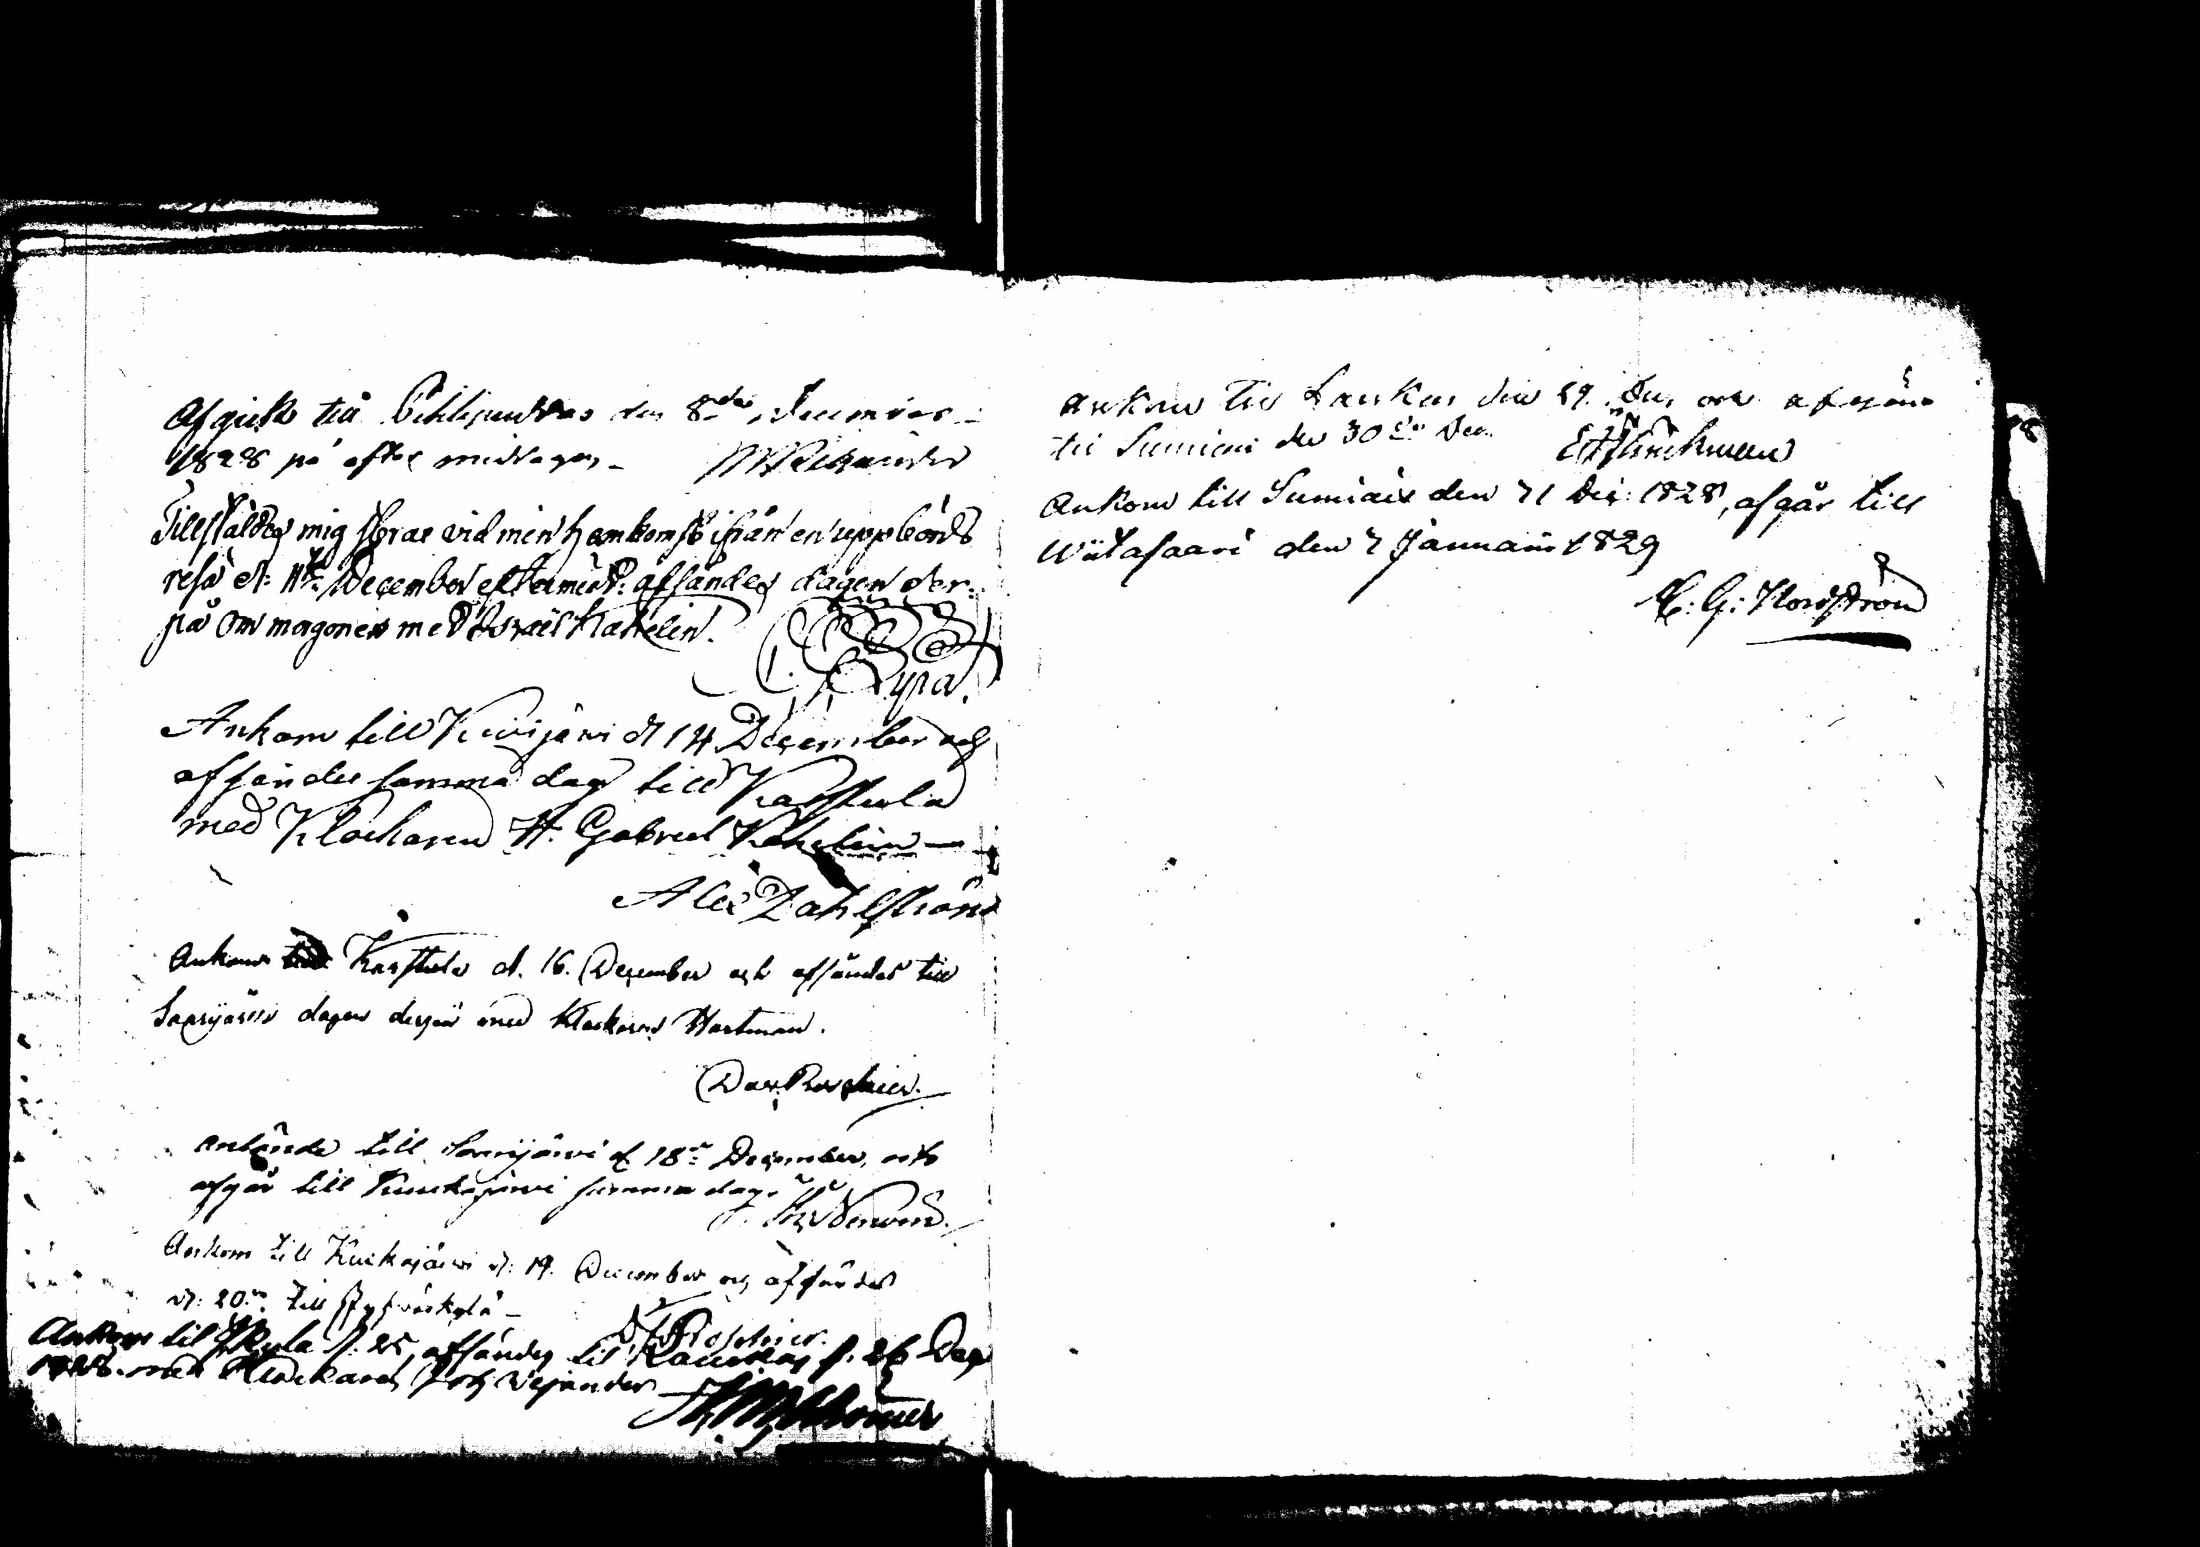 Afgick till Pihlajawesi den 8de December
1828 på efter middagen
Tillstäldes mig straxt vid min hemkomst ifrån en uppbörds
resa d: 11te December eftermidd: afsändes dagen der-
på om morgonen med Israel Kahelin.
Rypa.
Ankom till Kivijärvi d 14 December och
afsändes samma dag till Karstula
med Klockaren H. Gabriel Kahelin —
Alex Dahlström
Ankom Karstula d. 16. December och afsändes till
Saarijärvi dagen derpå med Klockaren Hartman.
Dav. Roschier.
Anlände till Saarijärvi d 18de December, och
afgår till Kuukajärvi samma dag.
Ankom till Kuukajärvi d: 19. December och afsändes
d: 20de till Jyfväskylä —
Roschier.
Ankom til Jkyla d. 25, afsändes til Laukas d. 26 Dec
1828. med Klockaren Joh Wejander
Ankom till Laukas den 29. Dec och afgår
til Sumiais den 30de Dec.
Ankom till Sumiais den 31 Dec: 1828, afgår till
Wiitasaari den 7 Januarii 1829
C: G: Nordström